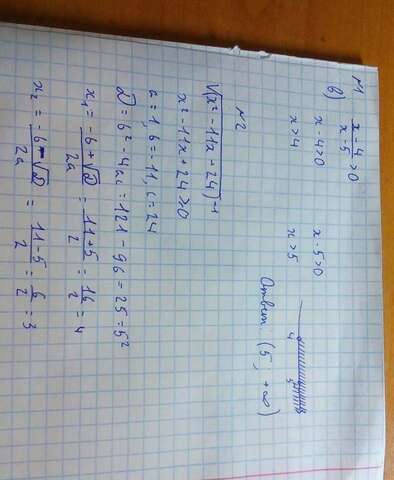 №1
в) x-4/x-5 > 0
x-4>0 x-5>0
x>4 x>5
4 5
Ответ: (5; +∞)
№2
√(x²-11x+24)⁻¹
x²-11x+24>0
a=1, b=-11, c=24
D=b²-4ac=121-96=25=5²
x₁ = -b+√D/2a = 11+5/2 = 16/2 = 4
x₂ = -b-√D/2a = 11-5/2 = 6/2 = 3